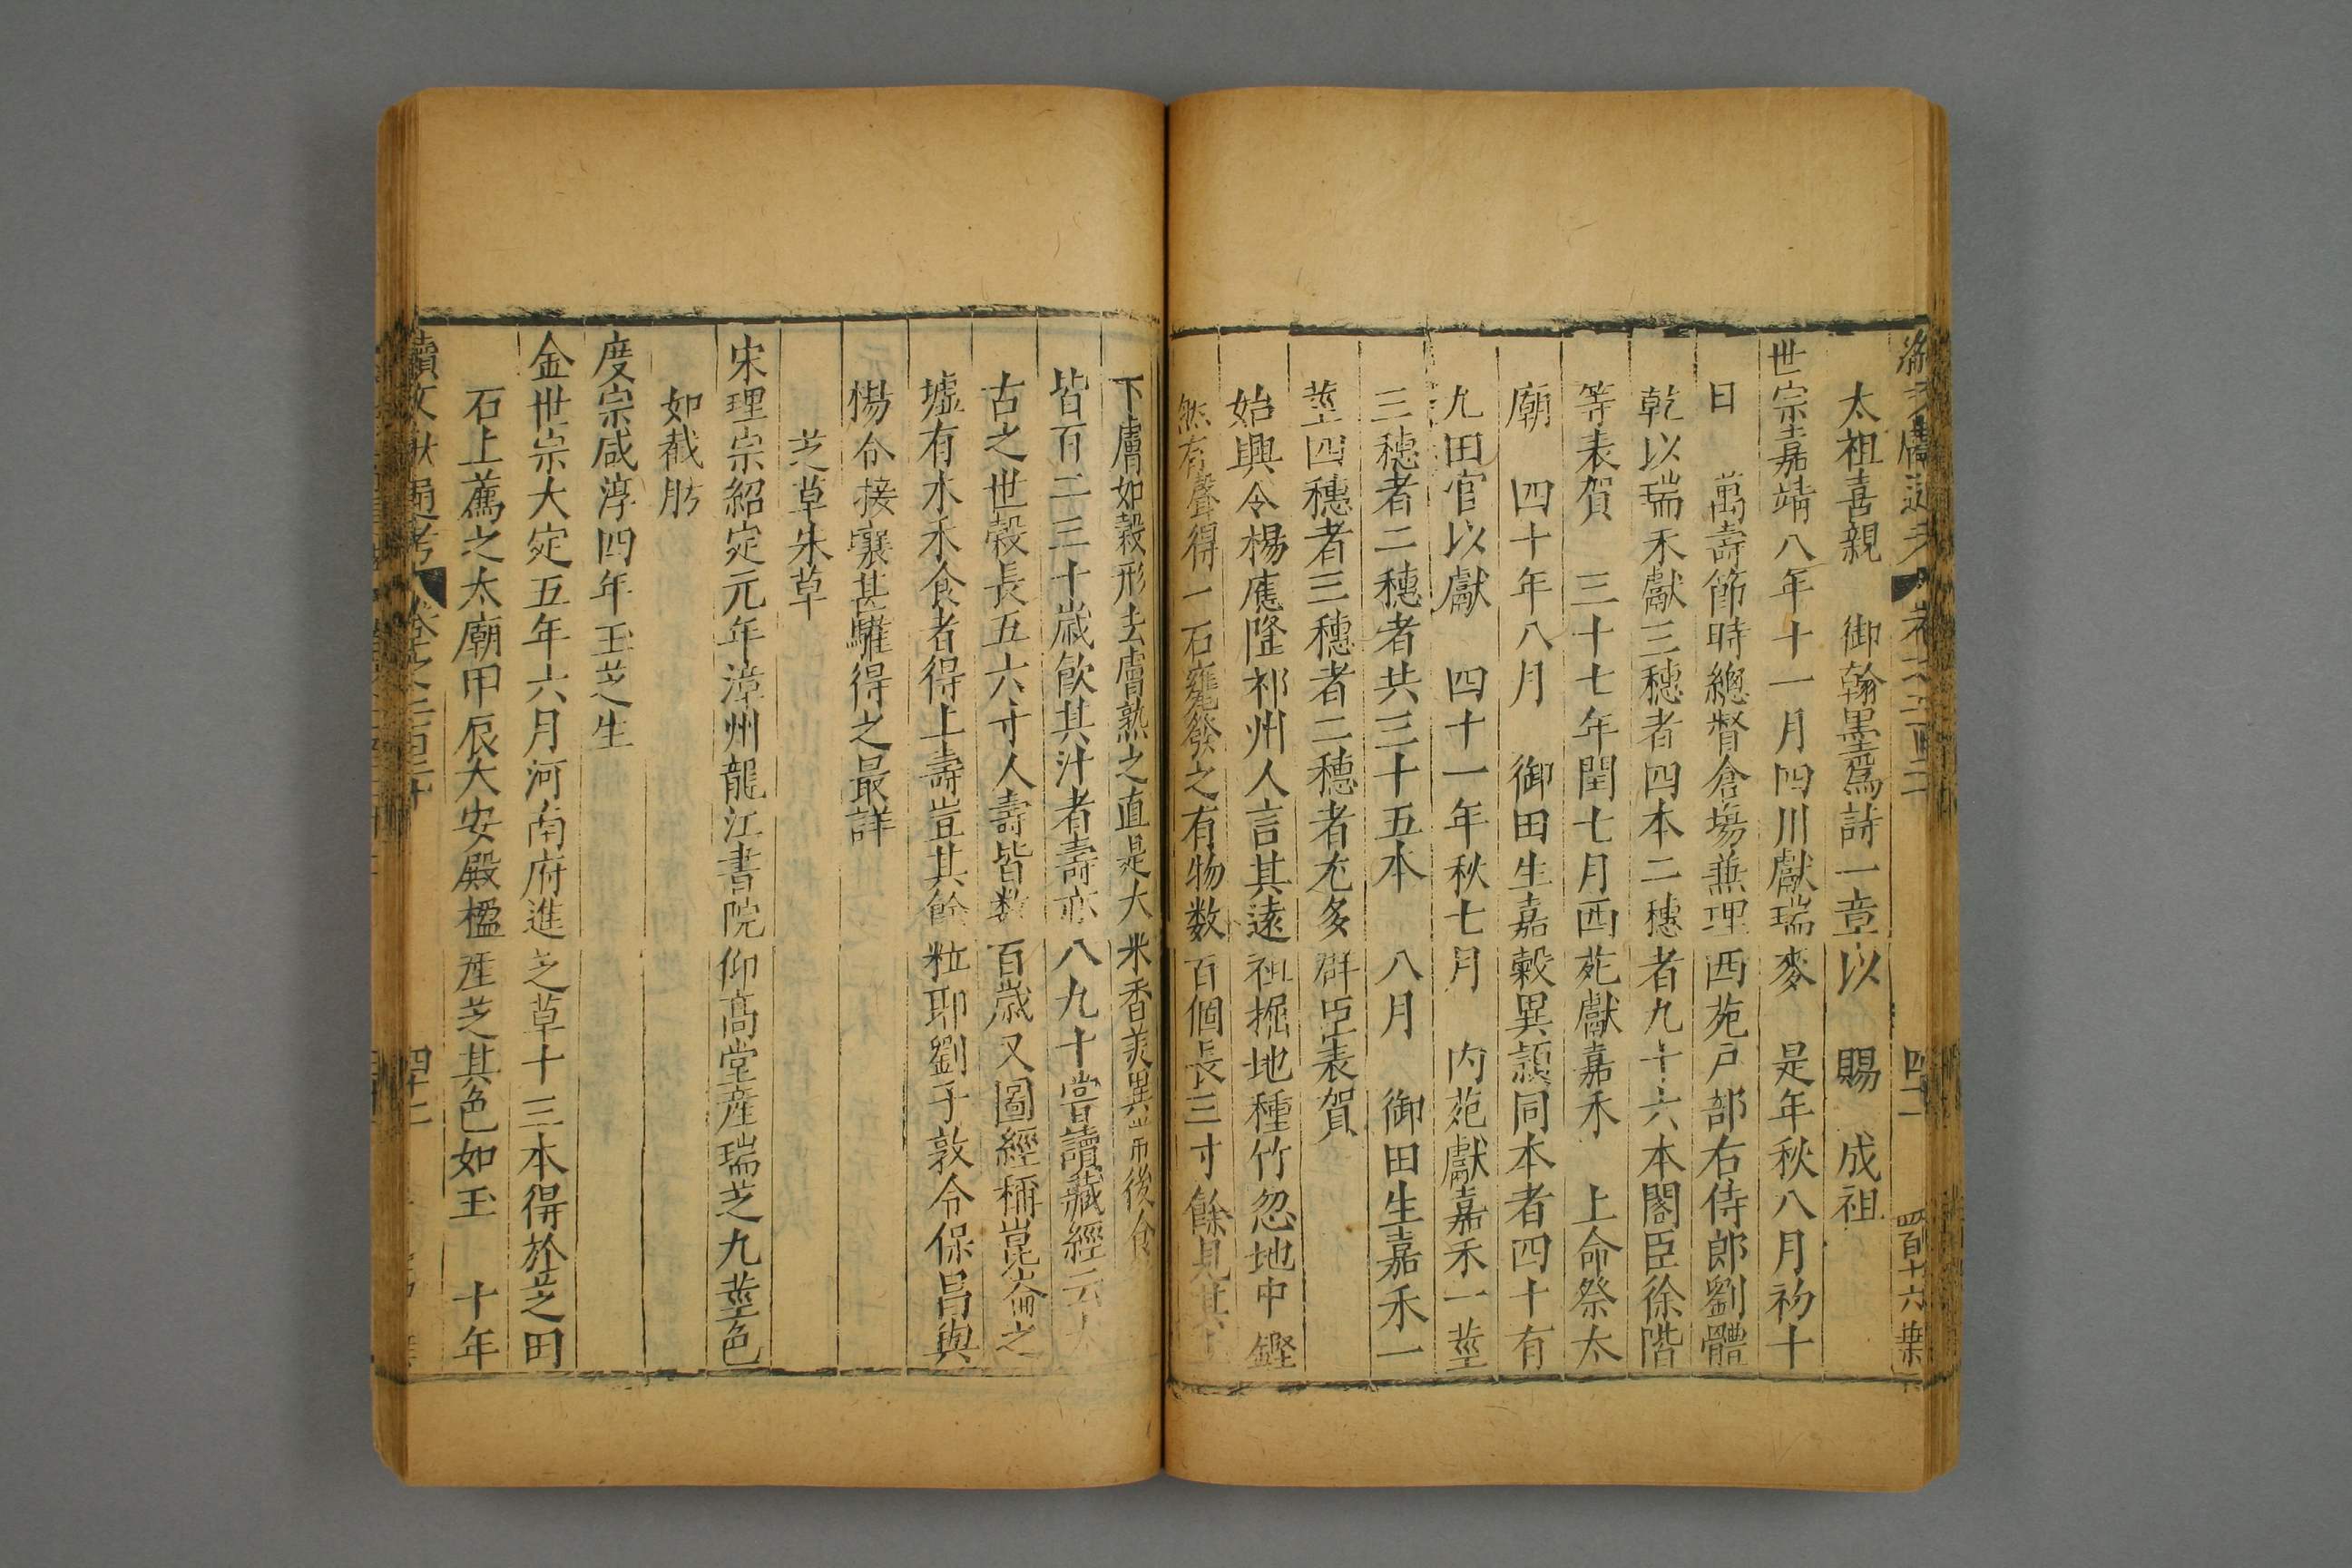 太祖喜親　御翰墨爲詩一章以　賜　成祖
世宗嘉靖八年十一月四川獻瑞麥　是年秋八月初十
日　萬壽節時總督倉塲兼理西苑戸部右侍郎劉體
乾以瑞禾獻三穗者四本二穗者九十六本閣臣徐階
等表賀　三十七年閏七月西苑獻嘉禾　上命祭太
廟　四十年八月　御田生嘉榖異頴同本者四十有
九田官以獻　四十一年秋七月　内苑獻嘉禾一莖
三穗者二穗者共三十五本　八月　御田生嘉禾一
莖四穗者三穗者二穗者充多群臣表賀
始興令楊應隆祁州人言其遠祖掘地種竹忽地中鏗
然有聲得一石甕發之有物数百個長三寸餘見其
下膚如榖形去膚熟之直是大米香美異常後食
皆百二三十歲飲其汁者壽亦八九十嘗讀藏經云
古之世榖長五六寸人壽皆数百歲又圖經稱崑崙之
墟有木禾食者得上壽豈其餘粒耶劉子敦令保昌與
楊令接壤甚驩得之最詳
芝草朱草
宋理宗紹定元年漳州龍江書院仰高堂産瑞芝九莖色
如截肪
度宗咸淳四年玉芝生
金世宗大定五年六月河南府進芝草十三本得於芝田
石上薦之太廟甲辰大安殿楹産芝其色如玉　十年
續文獻通考　卷之二百二十　四十二